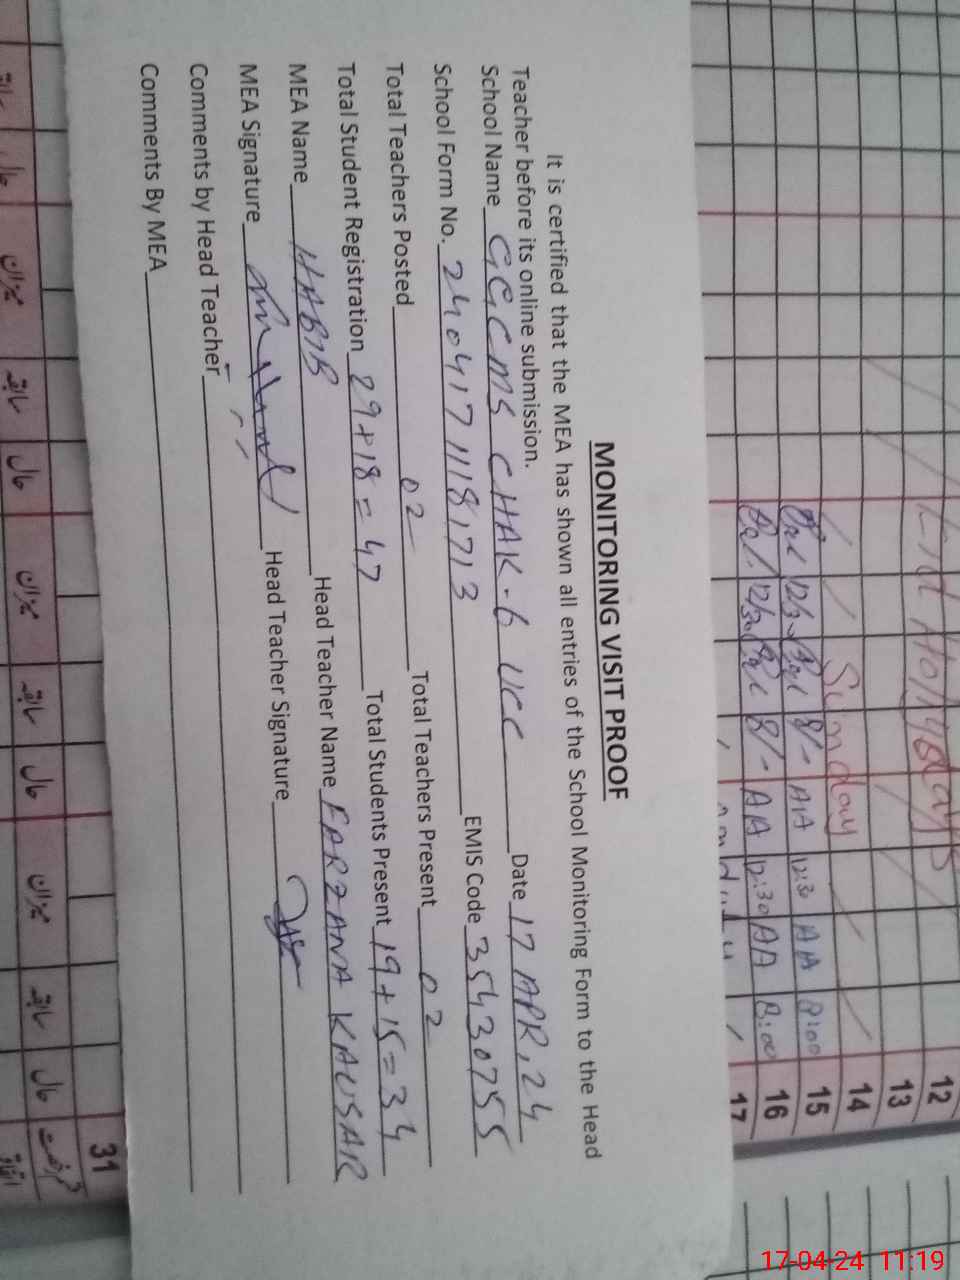 MONITORING VISIT PROOF
It is certified that the MEA has shown all entries of the School Monitoring Form to the Head
Teacher before its online submission.
School Name GGCMS CHAK-6 UCC Date 17 APR, 24
School Form No. 24041711181713 EMIS Code 35430755
Total Teachers Posted 02 Total Teachers Present 02
Total Student Registration 29+18=47 Total Students Present 19+15=34
MEA Name HABIB Head Teacher Name FARZANA KAUSAR
MEA Signature Head Teacher Signature
Comments by Head Teacher
Comments By MEA
12
13
14 Sunday
15 8/- AA 12:30 AA 8:00
16 8/- AA 12:30 AA 8:00
17
31
سابقہ حال میزان سابقہ حال میزان سابقہ حال میزان سابقہ حال
17-04-24 11:19